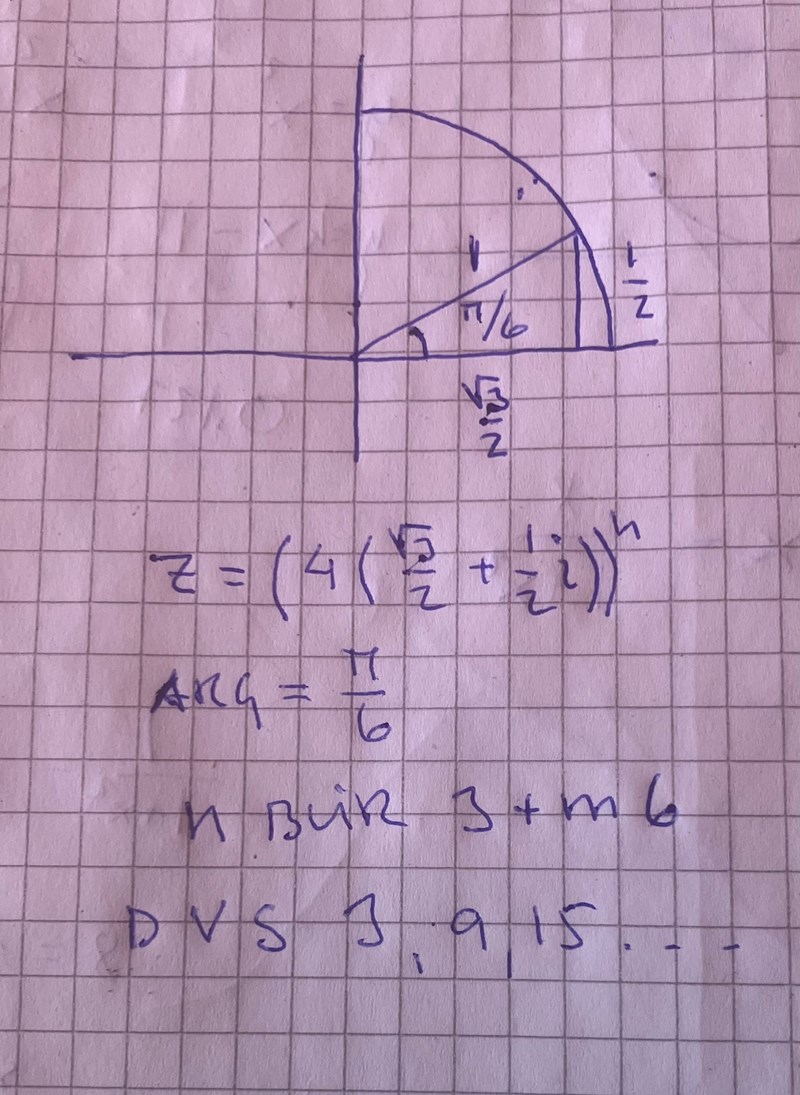 1
π/6
1/2
√3/2
Z = (4(√3/2 + 1/2 i))^n
ARG = π/6
n BLIR 3 + m 6
DVS 3, 9, 15...